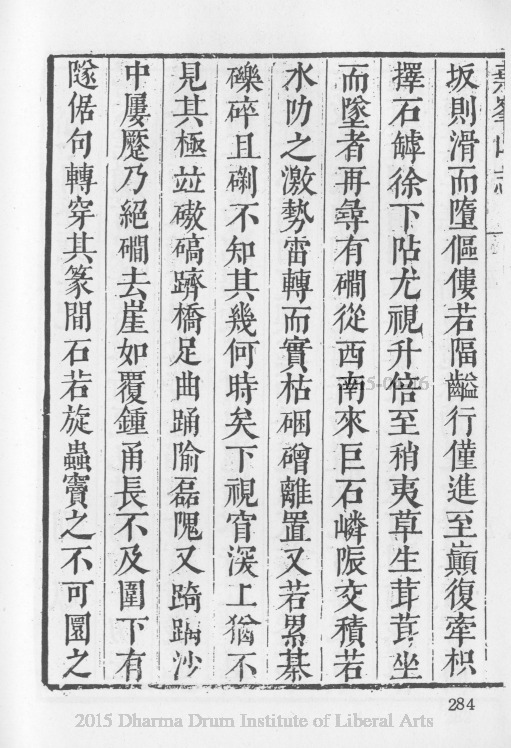 坂則滑而墮傴僂若隔齸行僅進至巔復牽枳
擇石罅徐下阽尤視升倍至稍夷草生茸茸坐
而墜者再尋有磵從西南來巨石嶙陙交積若
水叻之激勢雷轉而實枯硱磳離置又若累棊
礫碎且磵不知其幾何時矣下視窅深上猶不
見其極竝磝碻躋橋足曲踊隃磊隗又踦跼沙
中屢蹷乃絕磵去崖如覆鍾甬長不及圍下有
隧倨句轉穿其篆間石若旋蟲竇之不可圜之
284
2015 Dharma Drum Institute of Liberal Arts